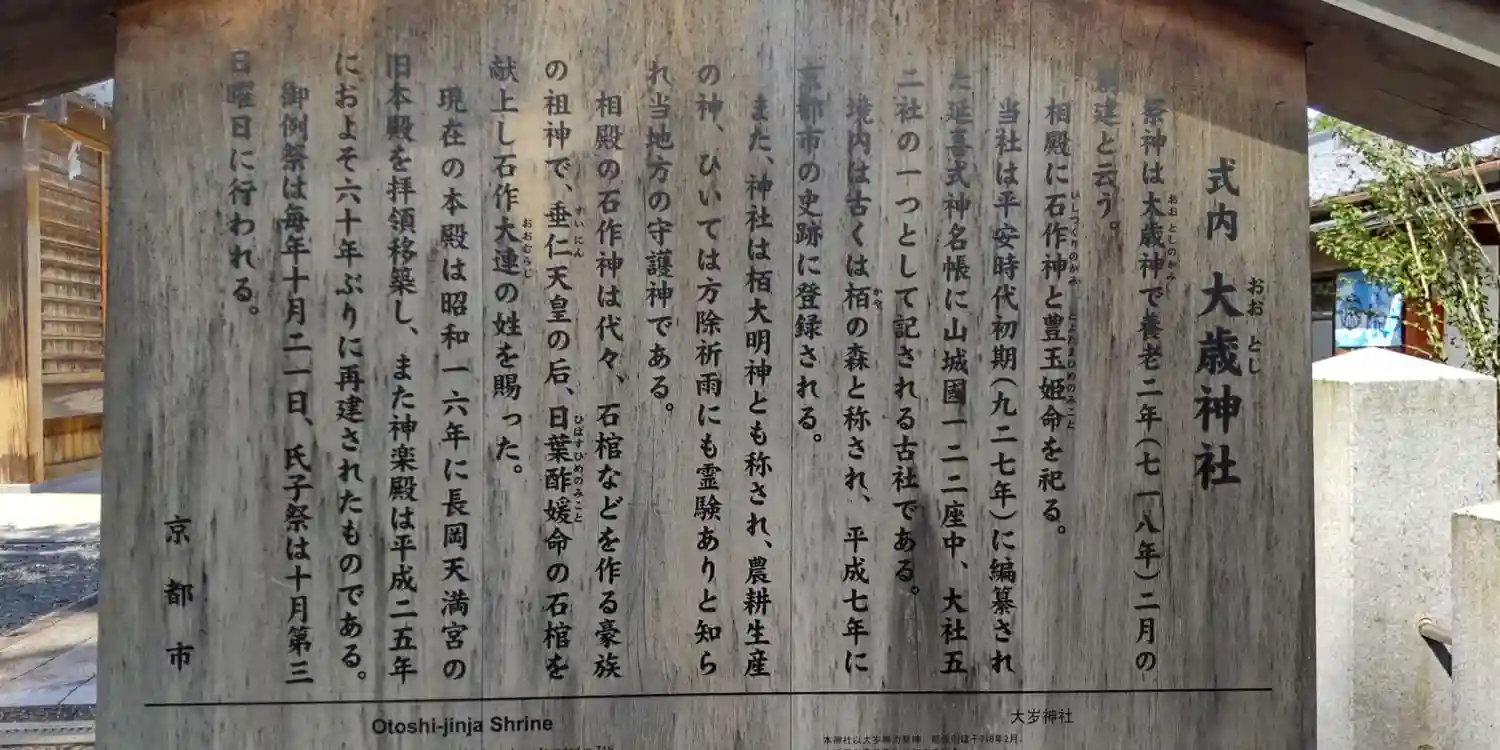 式内 大歳神社
おお とし
祭神は大歳神で養老二年(七一八年)二月の
おおとしのかみ
創建と云う。
相殿に石作神と豊玉姫命を祀る。
いしつくりのかみ とよたまひめのみこと
当社は平安時代初期(九二七年)に編纂され
た延喜式神名帳に山城國一二二座中、大社五
二社の一つとして記される古社である。
境内は古くは栢の森と称され、平成七年に
かや
京都市の史跡に登録される。
また、神社は栢大明神とも称され、農耕生産
の神、ひいては方除祈雨にも霊験ありと知ら
れ当地方の守護神である。
相殿の石作神は代々、石棺などを作る豪族
の祖神で、垂仁天皇の后、日葉酢媛命の石棺を
すいにん ひばすひめのみこと
献上し石作大連の姓を賜った。
おおむらじ
現在の本殿は昭和一六年に長岡天満宮の
旧本殿を拝領移築し、また神楽殿は平成二五年
におよそ六十年ぶりに再建されたものである。
御例祭は毎年十月二一日、氏子祭は十月第三
日曜日に行われる。
京都市
Otoshi-jinja Shrine
大岁神社